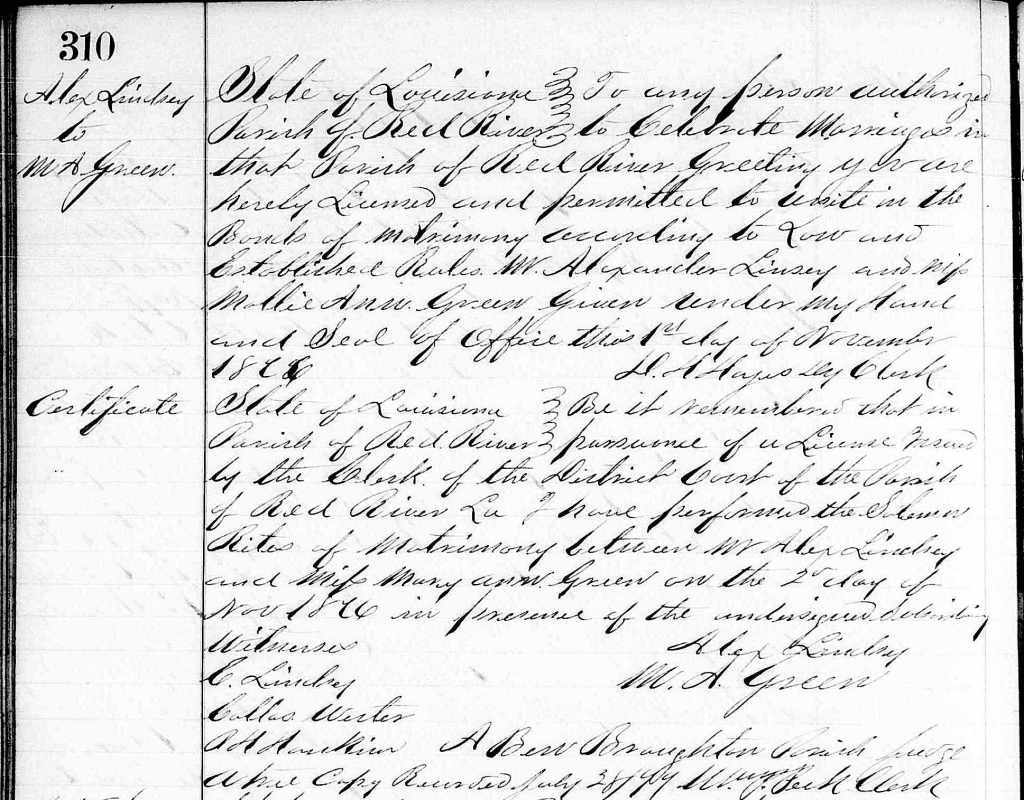 310
Alex Lindsey
to
M A Green.
State of Louisiana To any person authorized
Parish of Red River to Celebrate Marriages in
that Parish of Red River Greeting you are
hereby Licensed and permitted to unite in the
Bonds of matrimony according to Law and
Established Rules. Mr. Alexander Linsey and Miss
Mollie Ann. Green Given under my Hand
and Seal of Office this 1st day of November
1876 D. H. Hayes Dy Clerk
Certificate
State of Louisiana Be it remembered that in
Parish of Red River pursuance of a License issued
by the Clerk of the District Court of the Parish
of Red River La I have performed the Solemn
Rites of Matrimony between Mr Alex Lindsey
and Miss Mary ann. Green on the 2d day of
Nov 1876 in presence of the undersigned
Witnesses Alex Lindsey
E. Lindsey M. A. Green
Wester
A Ben Broughton Parish Judge
A true Copy Recorded July Clerk